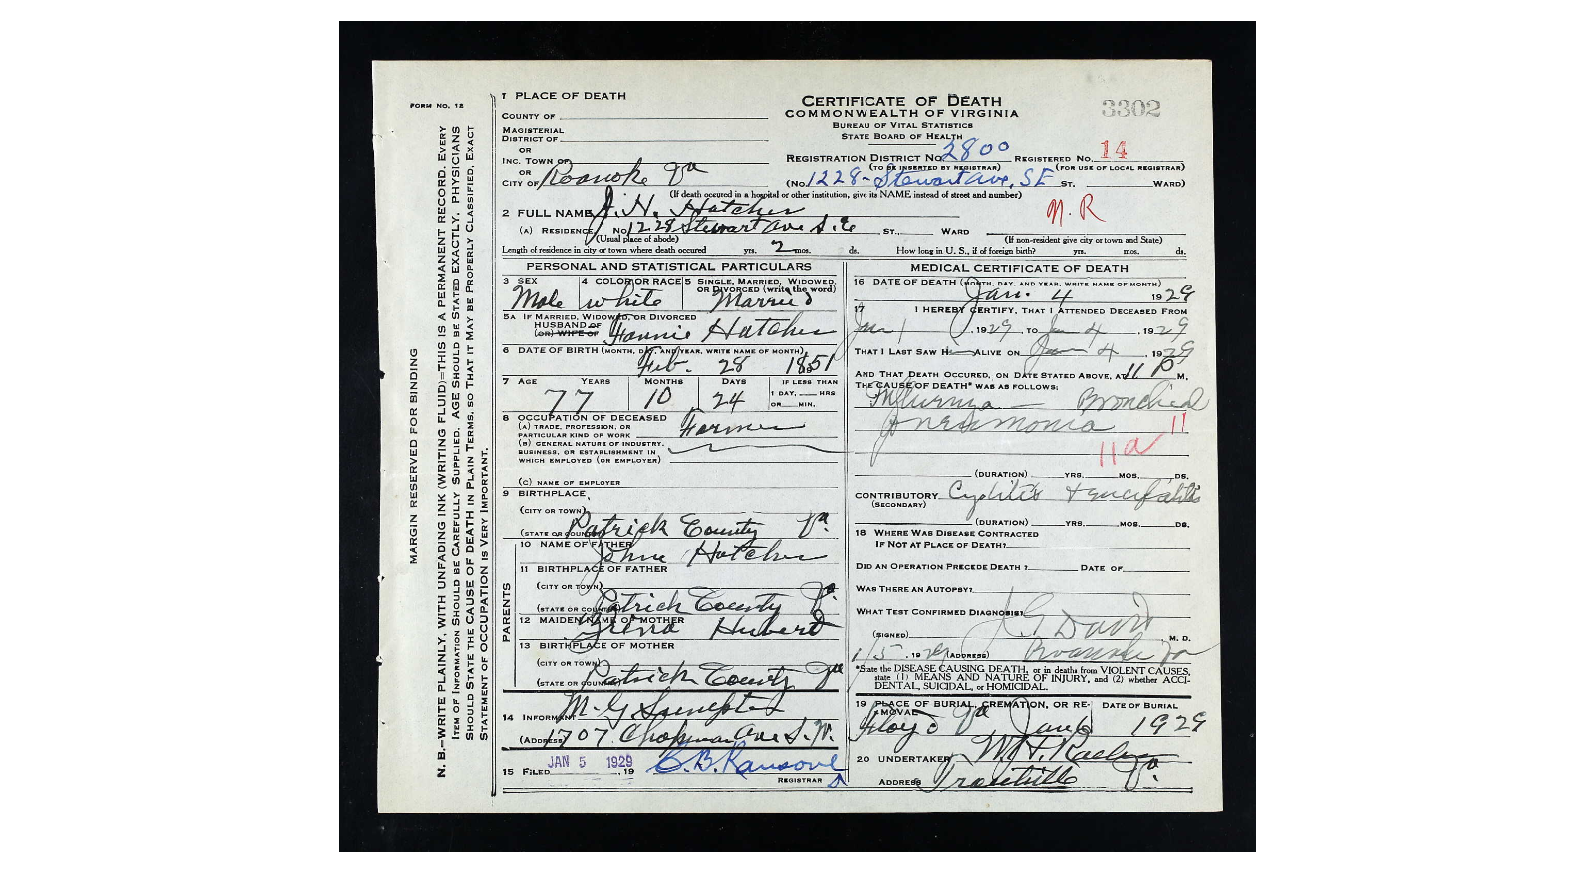 FORM NO. 12
MARGIN RESERVED FOR BINDING
N. B.—WRITE PLAINLY, WITH UNFADING INK (WRITING FLUID)—THIS IS A PERMANENT RECORD. EVERY
ITEM OF INFORMATION SHOULD BE CAREFULLY SUPPLIED. AGE SHOULD BE STATED EXACTLY. PHYSICIANS
SHOULD STATE THE CAUSE OF DEATH IN PLAIN TERMS, SO THAT IT MAY BE PROPERLY CLASSIFIED. EXACT
STATEMENT OF OCCUPATION IS VERY IMPORTANT.
1 PLACE OF DEATH
COUNTY OF
MAGISTERIAL
DISTRICT OF
OR
INC. TOWN OF
OR
CITY OF Roanoke Va
CERTIFICATE OF DEATH
COMMONWEALTH OF VIRGINIA
BUREAU OF VITAL STATISTICS
STATE BOARD OF HEALTH
3302
REGISTRATION DISTRICT NO. 2800 REGISTERED NO. 14
(TO BE INSERTED BY REGISTRAR) (FOR USE OF LOCAL REGISTRAR)
(No. 1228 - Stewart Ave, SE ST. WARD)
(If death occured in a hospital or other institution, give its NAME instead of street and number)
2 FULL NAME J. H. Hatcher
N.R
(A) RESIDENCE, No. 1228 Stewart Ave S.E ST., WARD
(Usual place of abode) (If non-resident give city or town and State)
Length of residence in city or town where death occured yrs. 2 mos. ds. How long in U. S., if of foreign birth? yrs. mos. ds.
PERSONAL AND STATISTICAL PARTICULARS
3 SEX 4 COLOR OR RACE 5 SINGLE, MARRIED, WIDOWED,
OR DIVORCED (write the word)
Male white Married
5A IF MARRIED, WIDOWED, OR DIVORCED
HUSBAND OF
(OR) WIFE OF Fannie Hatcher
6 DATE OF BIRTH (MONTH, DAY, AND YEAR, WRITE NAME OF MONTH)
Feb. 28 1851
7 AGE YEARS MONTHS DAYS IF LESS THAN
1 DAY, HRS
OR MIN.
77 10 24
8 OCCUPATION OF DECEASED
(A) TRADE, PROFESSION, OR
PARTICULAR KIND OF WORK Farmer
(B) GENERAL NATURE OF INDUSTRY,
BUSINESS, OR ESTABLISHMENT IN
WHICH EMPLOYED (OR EMPLOYER)
(C) NAME OF EMPLOYER
9 BIRTHPLACE,
(CITY OR TOWN)
(STATE OR COUNTRY) Patrick County Va.
PARENTS
10 NAME OF FATHER
John Hatcher
11 BIRTHPLACE OF FATHER
(CITY OR TOWN)
(STATE OR COUNTRY) Patrick County Va.
12 MAIDEN NAME OF MOTHER
Hubert
13 BIRTHPLACE OF MOTHER
(CITY OR TOWN)
(STATE OR COUNTRY) Patrick County Va
14 INFORMANT M. G.
(ADDRESS) 1707 Chapman Ave S.W.
15 FILED JAN 5 1929, 19 C.B. Ransone
REGISTRAR
MEDICAL CERTIFICATE OF DEATH
16 DATE OF DEATH (MONTH, DAY, AND YEAR, WRITE NAME OF MONTH)
Jan. 4 1929
17 I HEREBY CERTIFY, THAT I ATTENDED DECEASED FROM
Jan 1, 1929, TO Jan 4, 1929
THAT I LAST SAW H ALIVE ON Jan 4 1929
AND THAT DEATH OCCURED, ON DATE STATED ABOVE, AT 11 P M.
THE CAUSE OF DEATH* WAS AS FOLLOWS:
Influenza — Bronchial
pneumonia 11
11a
(DURATION) YRS. MOS. DS.
CONTRIBUTORY
(SECONDARY)
(DURATION) YRS. MOS. DS.
18 WHERE WAS DISEASE CONTRACTED
IF NOT AT PLACE OF DEATH?
DID AN OPERATION PRECEDE DEATH? DATE OF
WAS THERE AN AUTOPSY?
WHAT TEST CONFIRMED DIAGNOSIS?
(SIGNED) J G Davis M. D.
1/5, 1929 (ADDRESS) Roanoke Va
*State the DISEASE CAUSING DEATH, or in deaths from VIOLENT CAUSES,
state (1) MEANS AND NATURE OF INJURY, and (2) whether ACCI-
DENTAL, SUICIDAL, or HOMICIDAL.
19 PLACE OF BURIAL, CREMATION, OR RE- DATE OF BURIAL
MOVAL
Floyd Va Jan 6 1929
20 UNDERTAKER W. H.
ADDRESS Troutville Va.